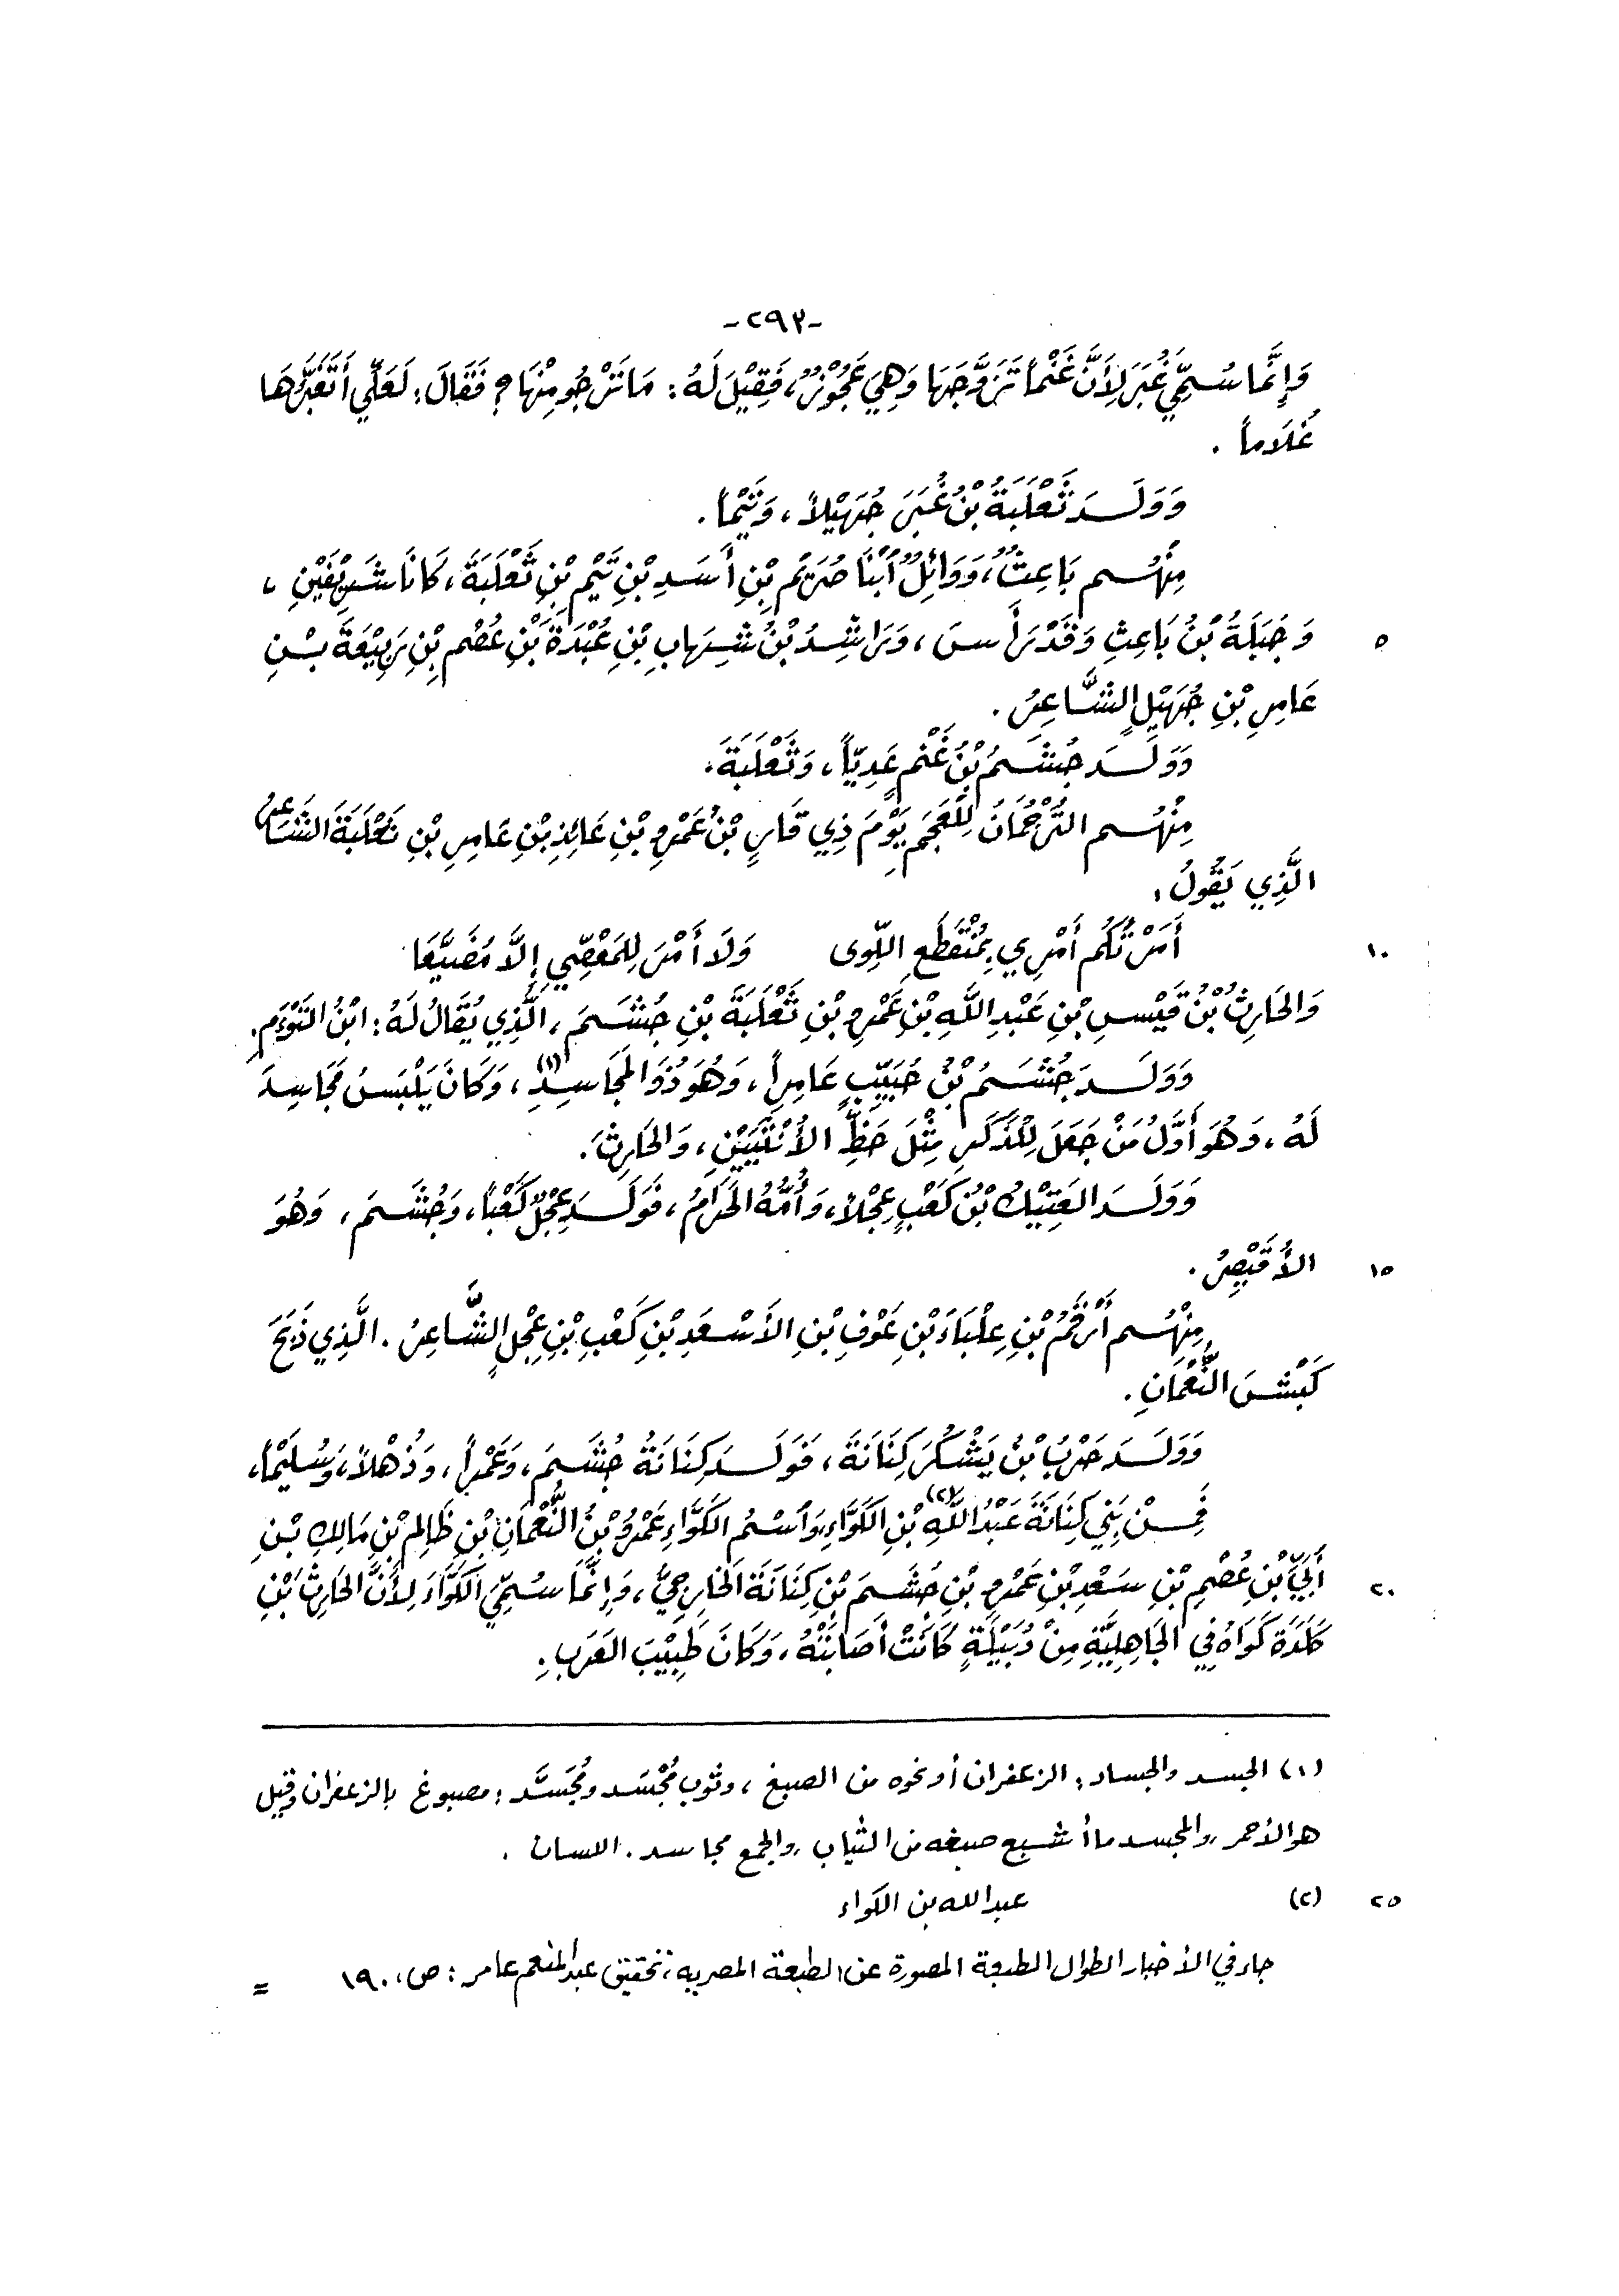 -٢٩٣-
وَإِنَّمَا سُمِّيَ غُبَرَ لِأَنَّ غَنْمَاً تَزَوَّجَهَا وَهِيَ عَجُوْزٌ، فَقِيْلَ لَهُ : مَا تَرْجُو مِنْهَا ؟ فَقَالَ : لَعَلِّي أَتَغَبَّرُهَا
غُلَاماً .
وَوَلَـدَ ثَعْلَبَةُ بْنُ غُبَرَ جُهَيْلاً ، وَتَيْماً .
مِنْهُـم بَاعِثٌ ، وَوَائِلٌ اُبْنَا صُرَيْمِ بْنِ أَسَـدِ بْنِ تَيْمِ بْنِ ثَعْلَبَةَ ، كَانَا شَرِيْفَيْنِ ،
وَجَبَلَةُ بْنُ بَاعِثِ وَقَدْ رَأَسَ ، وَرَاشِـدُ بْنُ شِـهَابِ بْنِ عُبْدَةَ بْنِ عُصْمِ بْنِ رَبِيْعَةَ بْـنِ ٥
عَامِرِ بْنِ جُهَيْلٍ الشَّـاعِرُ .
وَوَلَـدَ جُشَـمُ بْنُ غَنْمٍ عَدِيّاً ، وَثَعْلَبَةَ .
مِنْهُـم التُّرْجُمَانُ لِلْعَجَمِ يَوْمَ ذِي قَارٍ بْنُ عَمْرِو بْنِ عَائِذِ بْنِ عَامِرِ بْنِ ثَعْلَبَةَ الشَّـاعِرُ
الَّذِي يَقُولُ :
أَمَرْتُكُم أَمْرِي بِمُنْقَطَعِ اللِّوى     وَلَا أَمْرَ لِلمَعْصِيِّ إِلَّا مُضَيَّعَا ١٠
وَالحَارِثُ بْنُ قَيْسِ بْنِ عَبْدِ اللَّهِ بْنِ عَمْرِو بْنِ ثَعْلَبَةَ بْنِ جُشَـمَ ، الَّذِي يُقَالُ لَهُ : ابْنُ التَّوْءَمِ .
وَوَلَـدَ جُشَـمُ بْنُ حُبَيِّبٍ عَامِراً ، وَهُوَ ذُو المَجَاسِـدِ (١) ، وَكَانَ يَلْبَسُ مَجَاسِدَ
لَهُ ، وَهُوَ أَوَّلُ مَنْ جَعَلَ لِلذَّكَرِ مِثْلَ حَظِّ الأُنْثَيَيْنِ ، وَالحَارِثَ .
وَوَلَـدَ العَتِيْكُ بْنُ كَعْبٍ عِجْلاً ، وَأُمُّهُ الحَرَامُ ، فَوَلَـدَ عِجْلٌ كَعْباً ، وَجُشَـمَ ، وَهُوَ
الأُقَيْصِرُ . ١٥
مِنْهُـم أَرْقَمُ بْنِ عِلْبَاءَ بْنِ عَوْفِ بْنِ الأَسْـعَدِ بْنِ كَعْبِ بْنِ عِجْلٍ الشَّـاعِرُ . الَّذِي ذَبَحَ
كَبْشَ النُّعْمَانِ .
وَوَلَـدَ حَرْبُ بْنُ يَشْكُرَ كِنَانَةَ ، فَوَلَـدَ كِنَانَةُ جُشَـمَ ، وَعَمْراً ، وَذُهْلاً ، وَسُلَيْماً ،
فَمِـنْ بَنِي كِنَانَةَ عَبْدُ اللَّهِ (٢) بْنِ الكَوَّاءِ ، وَاُسْـمُ الكَوَّاءِ عَمْرُو بْنُ النُّعْمَانِ بْنِ ظَالِمِ بْنِ مَالِكِ بْـنِ
أُبَيِّ بْنِ عُصْمِ بْنِ سَـعْدِ بْنِ عَمْرِو بْنِ جُشَـمَ بْنِ كِنَانَةَ الخَارِجِيُّ ، وَإِنَّمَا سُمِّيَ الكَوَّاءَ لِأَنَّ الحَارِثَ بْنِ ٢٠
كَلَدَةَ كَوَاهُ فِي الجَاهِلِيَّةِ مِنْ دُبَيْلَةٍ كَانَتْ أَصَابَتْهُ ، وَكَانَ طَبِيْبَ العَرَبِ .
(١) الجسد والجساد : الزعفران أو نحوه من الصبغ ، وثوب مُجْسَد ومُجَسَّد : مصبوغ بالزعفران وقيل
هو الأحمر ، والمجسد ما أشبع صبغه من الثياب ، والجمع مجاسد . اللسان .
(٢) عبد الله بن الكواء ٢٥
جاء في الأخبار الطوال الطبعة المصورة عن الطبعة المصرية ، تحقيق عبد المنعم عامر : ص ، ١٩٠ =